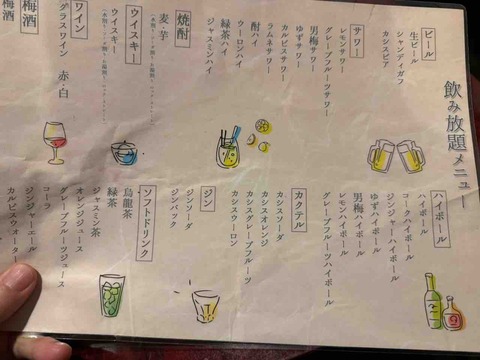 飲み放題メニュー
ビール
生ビール
シャンディガフ
カシスビア
サワー
レモンサワー
グレープフルーツサワー
男梅サワー
ゆずサワー
カルピスサワー
ラムネサワー
酎ハイ
ウーロンハイ
緑茶ハイ
ジャスミンハイ
焼酎
麦・芋
ウイスキー
ウイスキー
ワイン
グラスワイン 赤・白
梅酒
梅酒
ハイボール
ハイボール
コークハイボール
ジンジャーハイボール
ゆずハイボール
男梅ハイボール
レモンハイボール
グレープフルーツハイボール
カクテル
カシスソーダ
カシスオレンジ
カシスグレープフルーツ
カシスウーロン
ジン
ジンソーダ
ジンバック
ソフトドリンク
烏龍茶
緑茶
ジャスミン茶
オレンジジュース
グレープフルーツジュース
コーラ
ジンジャーエール
カルピスウォーター